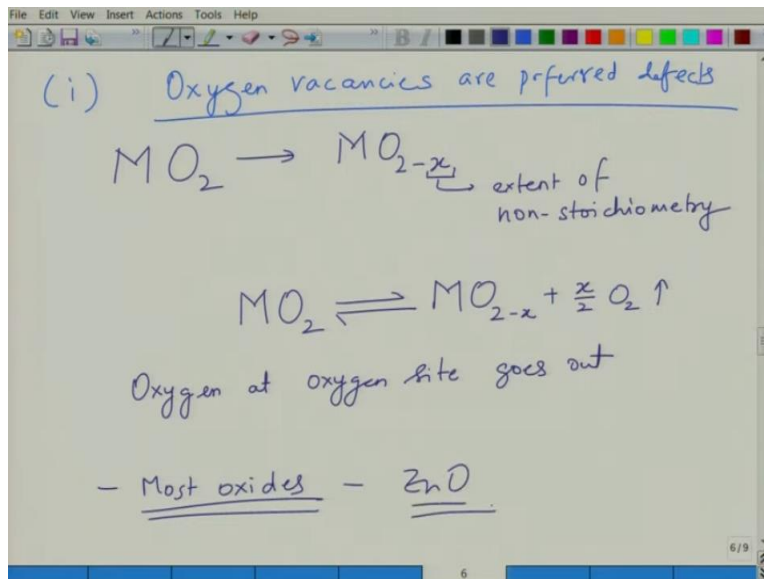 File Edit View Insert Actions Tools Help
(i) Oxygen vacancies are prferred defects
MO₂ → MO₂₋ₓ
extent of
non-stoichiometry
MO₂ ⇌ MO₂₋ₓ + x/2 O₂ ↑
Oxygen at oxygen site goes out
- Most oxides - ZnO
6/9
6